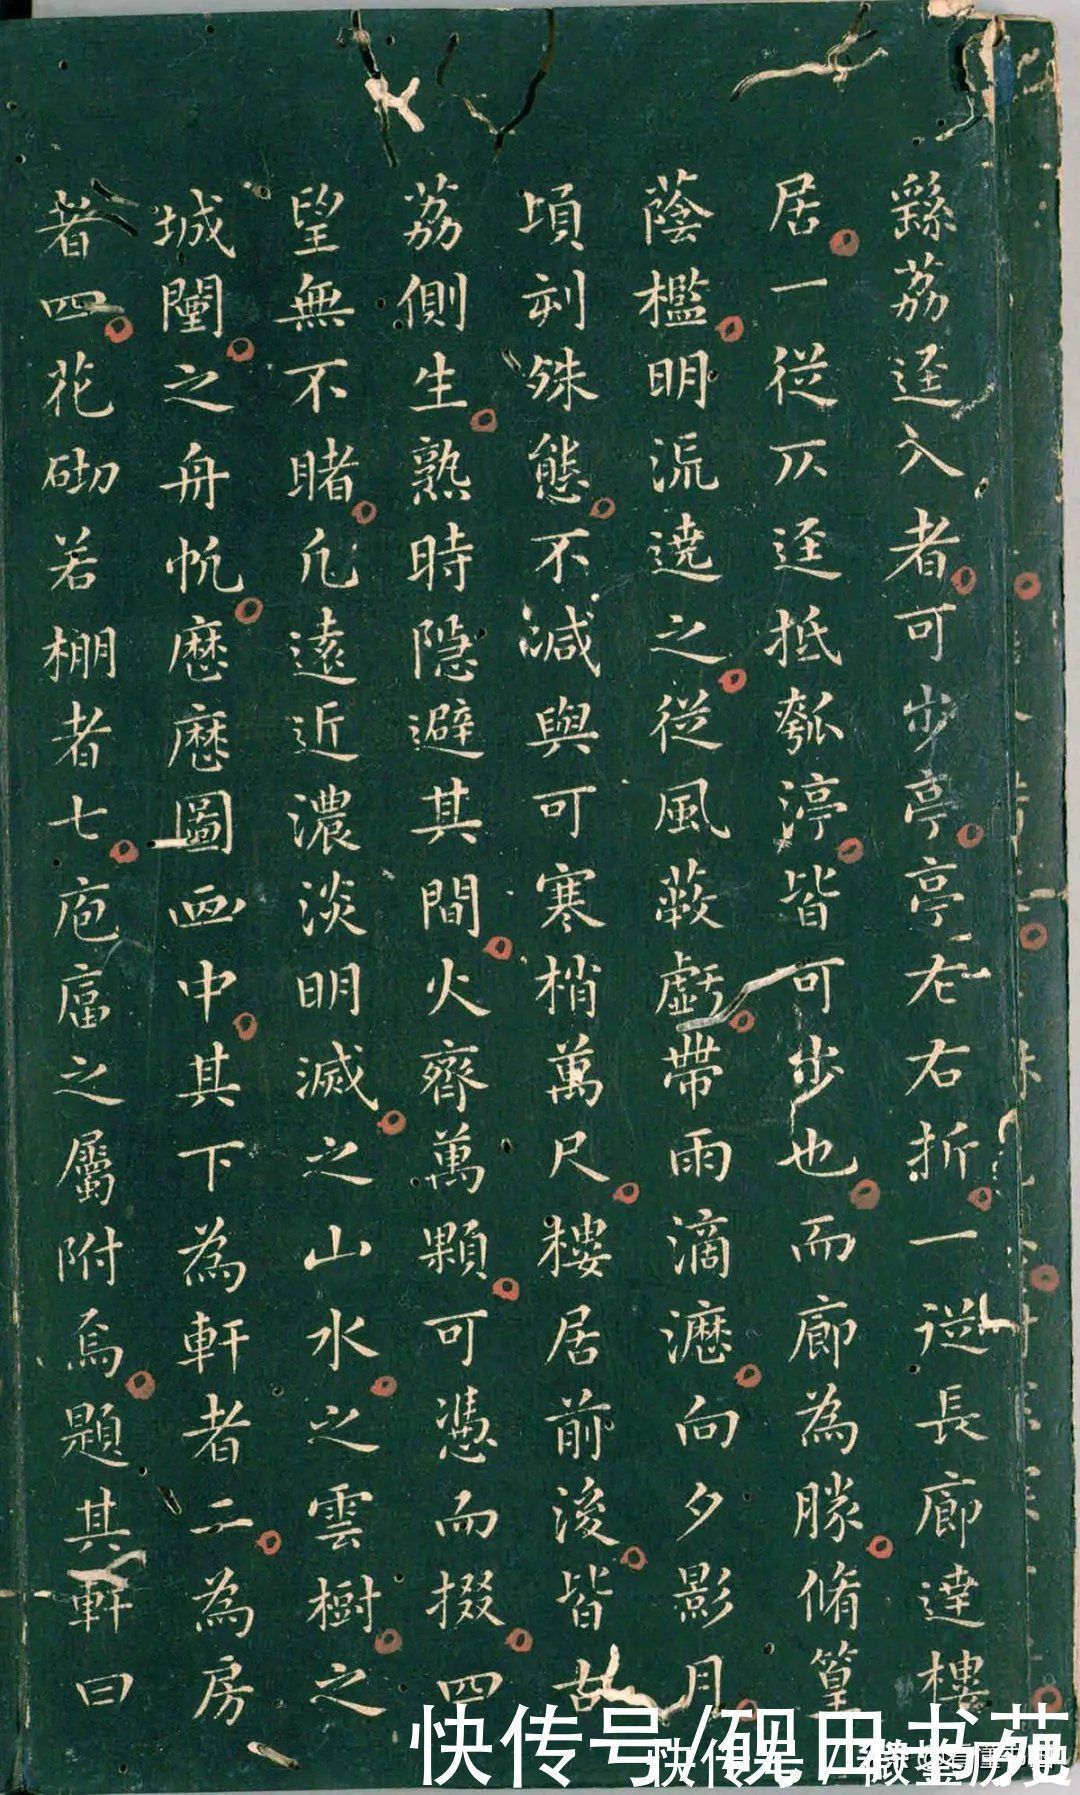 繇荔迳入者可步亭亭左右折一從長廊達樓
居一從仄迳抵瓠渟皆可步也而廊為勝脩篁
蔭檻明流遶之從風蔽虧帶雨滴瀝向夕影月
頃刻殊態不減與可寒梢萬尺樓居前後皆古
荔側生熟時隱避其間火齊萬顆可憑而掇四
望無不睹凢遠近濃淡明滅之山水之雲樹之
城闉之舟帆歷歷圖畫中其下為軒者二為房
者四花砌若棚者七庖湢之屬附焉題其軒曰
快传号/砚田书苑